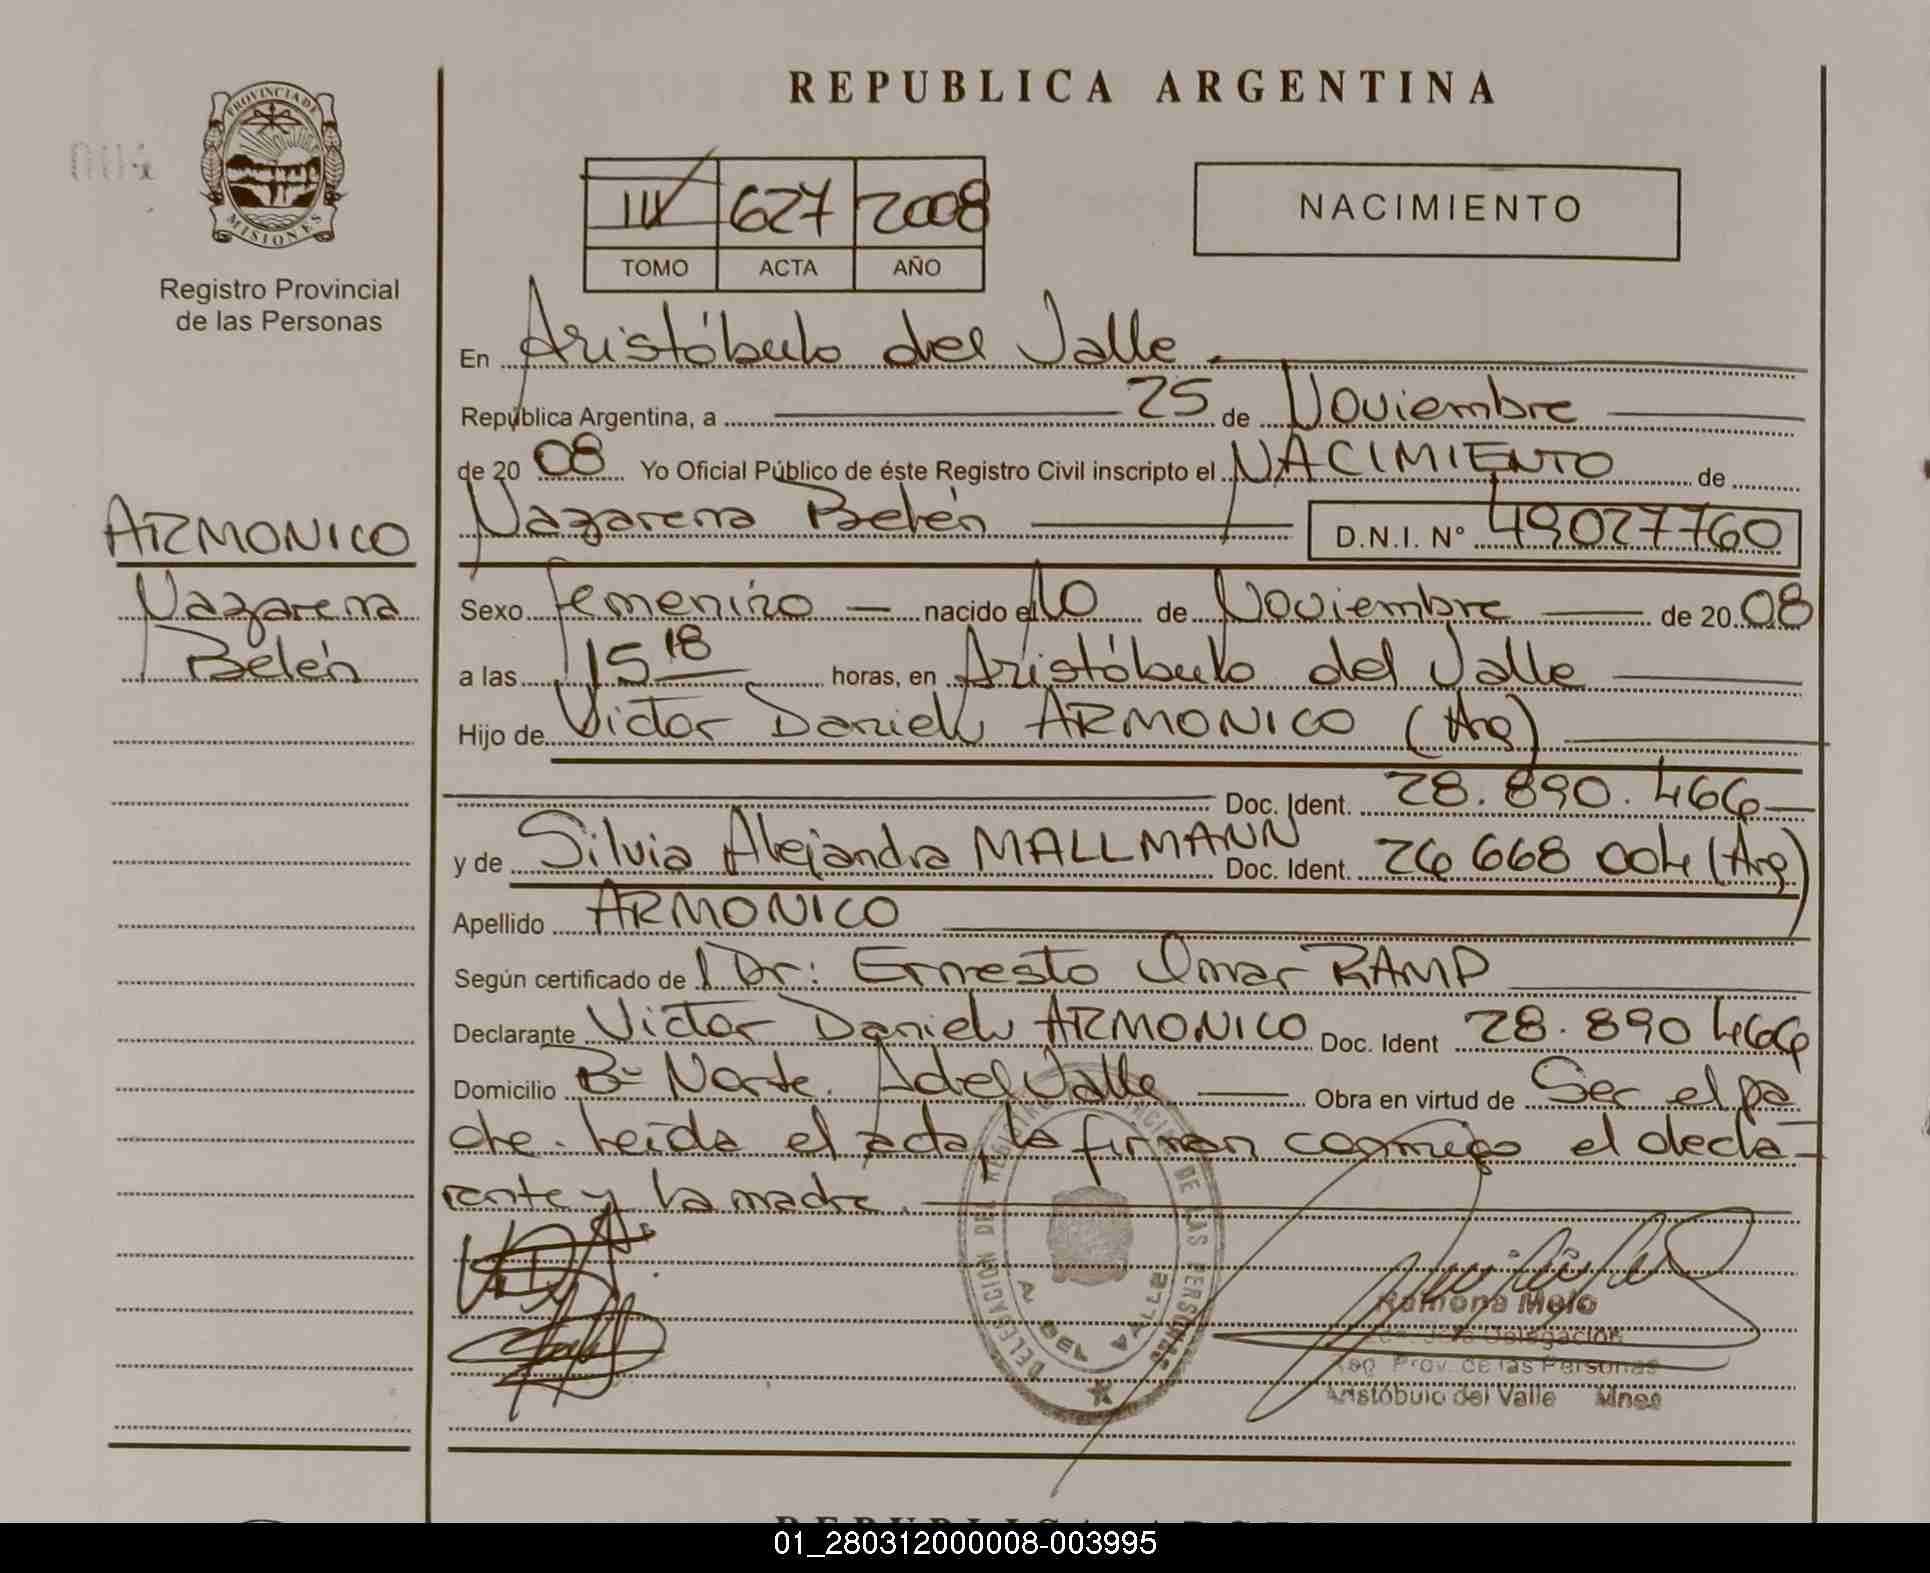 REPUBLICA ARGENTINA
PROVINCIA DE
MISIONES
Registro Provincial
de las Personas
III 627 2008
TOMO ACTA AÑO
NACIMIENTO
En Aristóbulo del Valle.
República Argentina, a 25 de Noviembre
de 2008 Yo Oficial Público de éste Registro Civil inscripto el NACIMIENTO de
Nazarena Belén D.N.I. N° 49027760
ARMONICO
Nazarena
Belén
Sexo femenino nacido el 10 de Noviembre de 2008
a las 15 18 horas, en Aristóbulo del Valle
Hijo de Victor Daniel ARMONICO (Arg)
Doc. Ident. 28.890.466
y de Silvia Alejandra MALLMANN Doc. Ident. 26 668 004 (Arg)
Apellido ARMONICO
Según certificado de Dr: Ernesto Omar RAMP
Declarante Victor Daniel ARMONICO Doc. Ident 28.890 466
Domicilio B° Norte. A del Valle Obra en virtud de Ser el pa
dre. Leída el acta, la firman conmigo el decla-
rante y la madre.
DELEGACION DEL REGISTRO DE LAS PERSONAS
A. DEL VALLE
Ramona Melo
Delegación
Reg. Prov. de las Personas
Aristóbulo del Valle Mnes
01_280312000008-003995